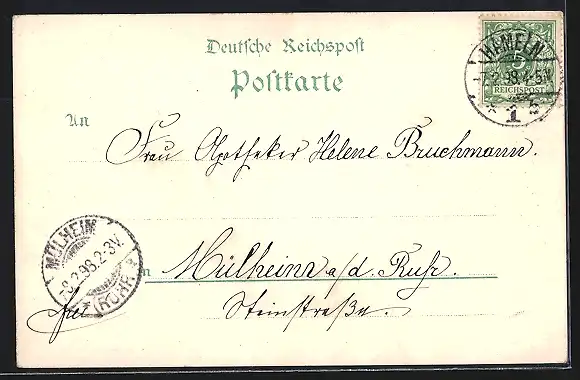 Deutsche Reichspost
Postkarte
HAMELN
5
REICHSPOST
-7.2.98.4-5N.
* 1
An
Frau Apotheker Helene Bruchmann.
MÜLHEIM
-8.2.98.2-3V.
* (RUHR) *
in Mülheim a/d. Ruhr.
frei
Steinstraße.